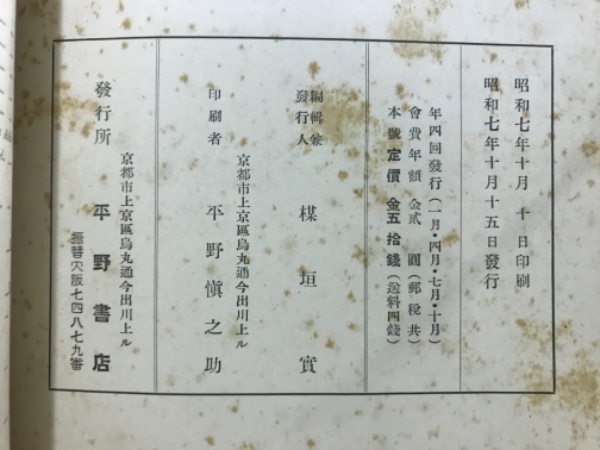 昭和七年十月 十 日印刷
昭和七年十月十五日發行
年四回發行(一月・四月・七月・十月)
會費年額 金貳 圓(郵稅共)
本號定價 金五拾錢(送料四錢)
編輯兼
發行人
楳垣實
京都市上京區烏丸通今出川上ル
印刷者 平野愼之助
京都市上京區烏丸通今出川上ル
發行所 平野書店
振替大阪七四八七九番